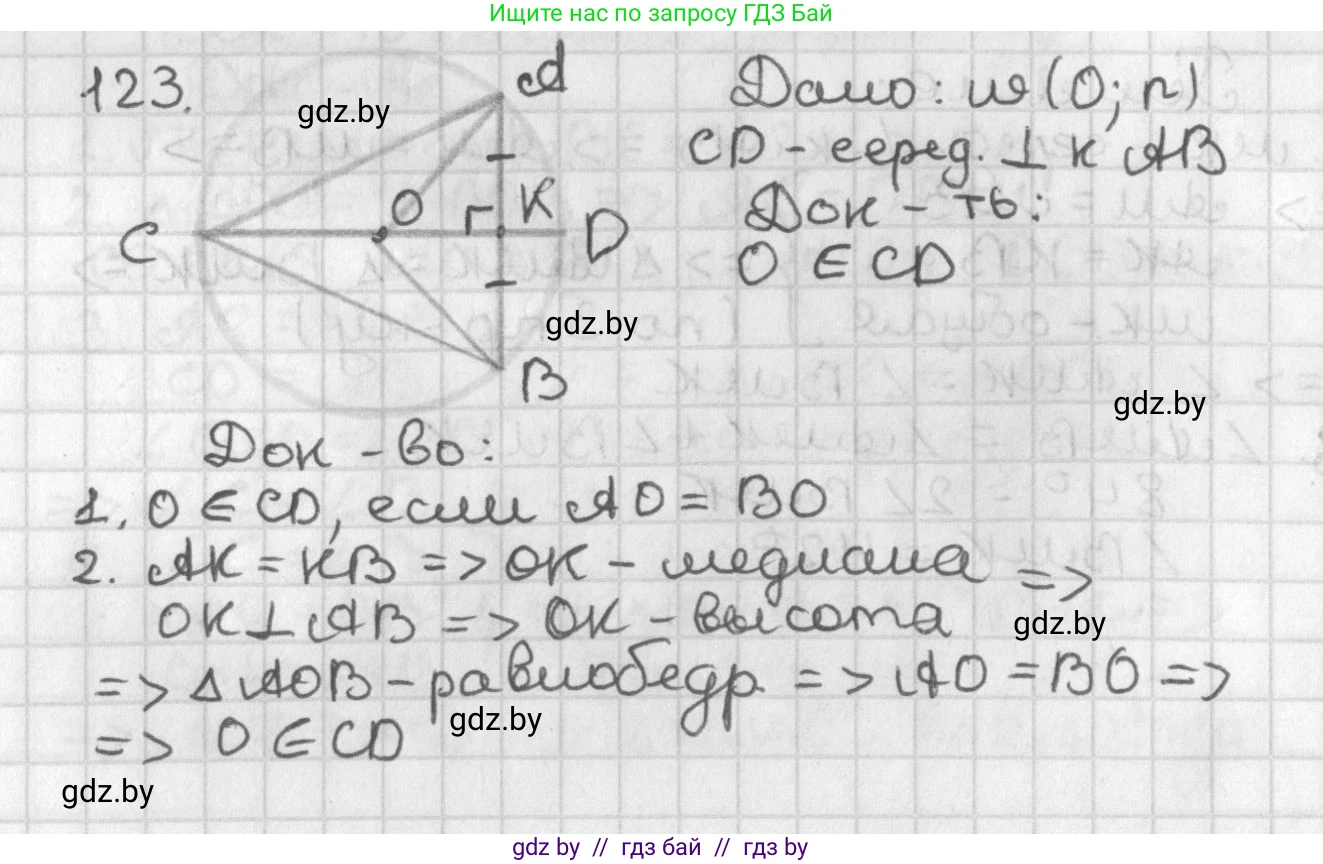 Ищите нас по запросу ГДЗ Бай
123.
gdz.by
A
O
K
C
D
B
Дано: w (O; r)
CD - серед. ⊥ к AB
Док - ть:
O ∈ CD
gdz.by
gdz.by
Док - во:
1. O ∈ CD, если AO = BO
2. AK = KB => OK - медиана =>
OK ⊥ AB => OK - высота
gdz.by
=> △ AOB - равнобедр => AO = BO =>
gdz.by
=> O ∈ CD
gdz.by
gdz by // гдз бай // гдз by